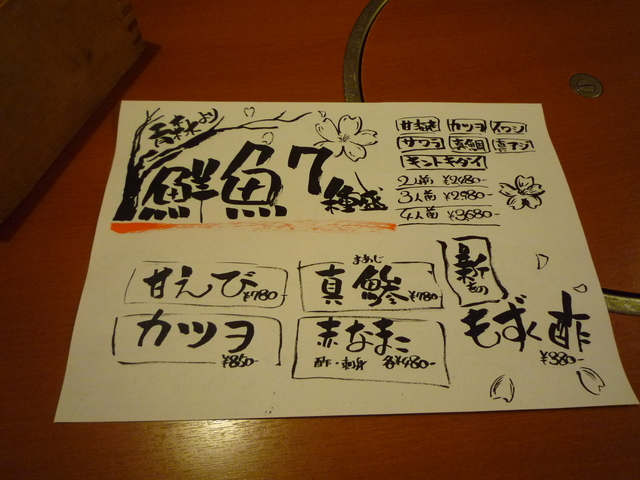 青森より
鮮魚7
種盛
甘えび カツヲ イワシ
サワラ 真鯛 真アジ
キントキダイ
2人前 ¥2480-
3人前 ¥2980-
4人前 ¥3680-
甘えび ¥780-
まあじ
真鯵 ¥780-
新もの
カツヲ
¥850-
赤なまこ
酢・刺身 各¥480-
もずく酢
¥380-